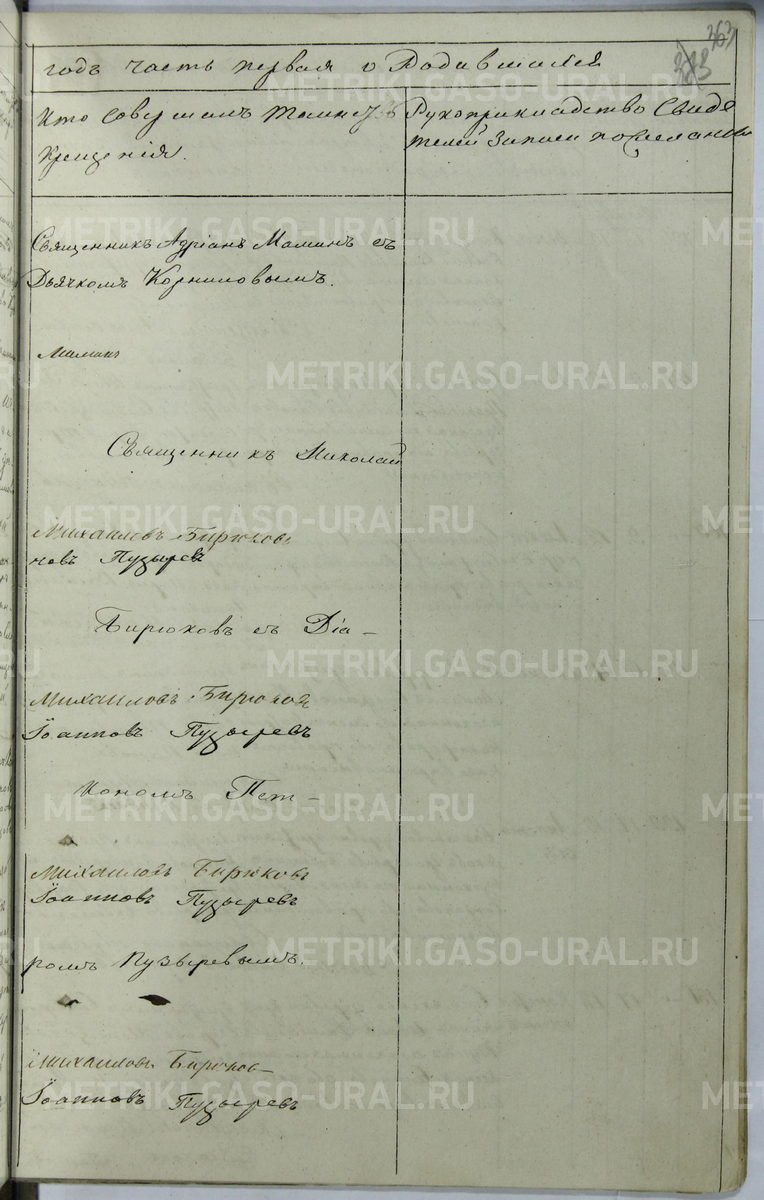 363
383
годъ часть первая о Родившихся
Кто совершалъ таинство
крещенія.
Рукоприкладство свиде
телей записи по желанію
Священникъ Адріанъ Маминъ съ
Дьячкомъ Корниловымъ.
Маминъ
Священникъ Николай
Михаиловъ Бирюковъ
новъ Пузыревъ
Бирюковъ съ Діа-
Михаиловъ Бирюковъ
Іоанновъ Пузыревъ
кономъ Пет-
Михаиловъ Бирюковъ
Іоанновъ Пузыревъ
ромъ Пузыревымъ.
Михаиловъ Бирюковъ
Іоанновъ Пузыревъ
METRIKI.GASO-URAL.RU